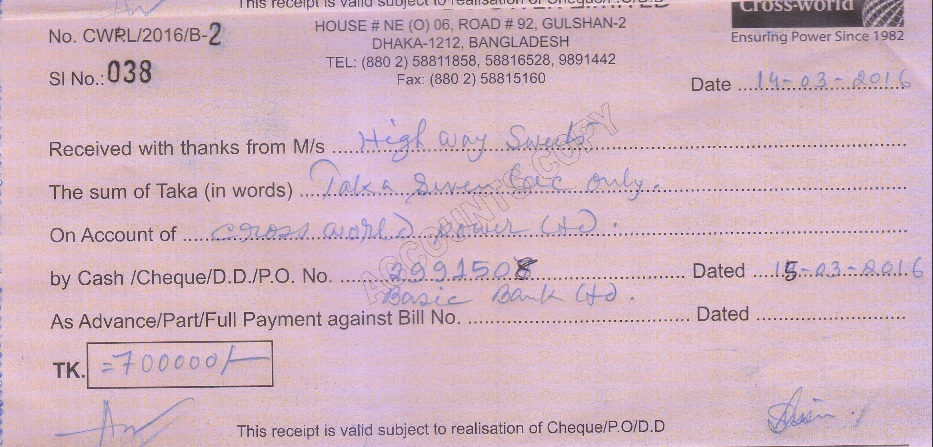 This receipt is valid subject to realisation of Cheque/P.O/D.D
Cross-world
Ensuring Power Since 1982
No. CWRL/2016/B-2
HOUSE # NE (O) 06, ROAD # 92, GULSHAN-2
DHAKA-1212, BANGLADESH
TEL: (880 2) 58811858, 58816528, 9891442
Fax: (880 2) 58815160
Sl No.: 038
Date 14-03-2016
Received with thanks from M/s High way Sweets
The sum of Taka (in words) Taka Seven Lac only.
On Account of cross world power Ltd.
by Cash /Cheque/D.D./P.O. No. 2991508 Dated 15-03-2016
Basic Bank Ltd.
As Advance/Part/Full Payment against Bill No. Dated
TK. =700000/-
ACCOUNTS COPY
This receipt is valid subject to realisation of Cheque/P.O/D.D